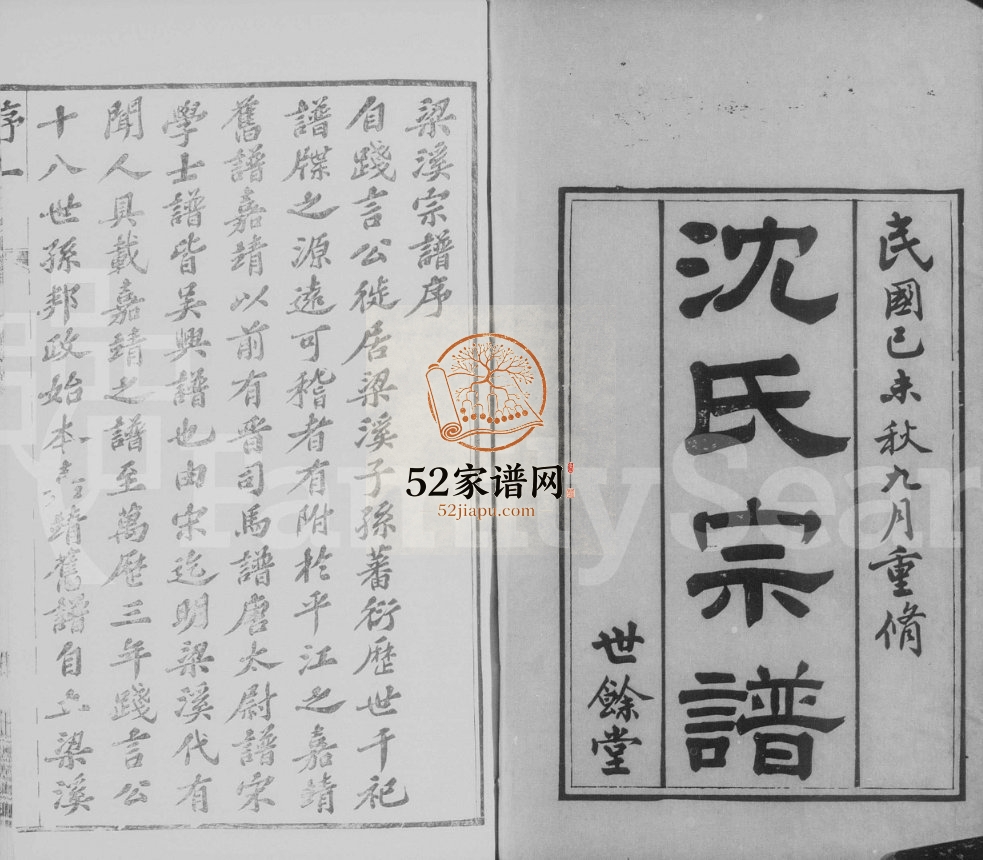 民國己未秋九月重脩
沈氏宗譜
世餘堂
梁溪宗譜序
自踐言公徙居梁溪子孫蕃衍歷世千祀
譜牒之源遠可稽者有附於平江之嘉靖
舊譜嘉靖以前有晉司馬譜唐太尉譜宋
學士譜皆吳興譜也由宋迄明梁溪代有
聞人具載嘉靖之譜至萬厯三年踐言公
十八世孫邦政始本嘉靖舊譜自立梁溪
序
52家谱网
52jiapu.com
FamilySearch